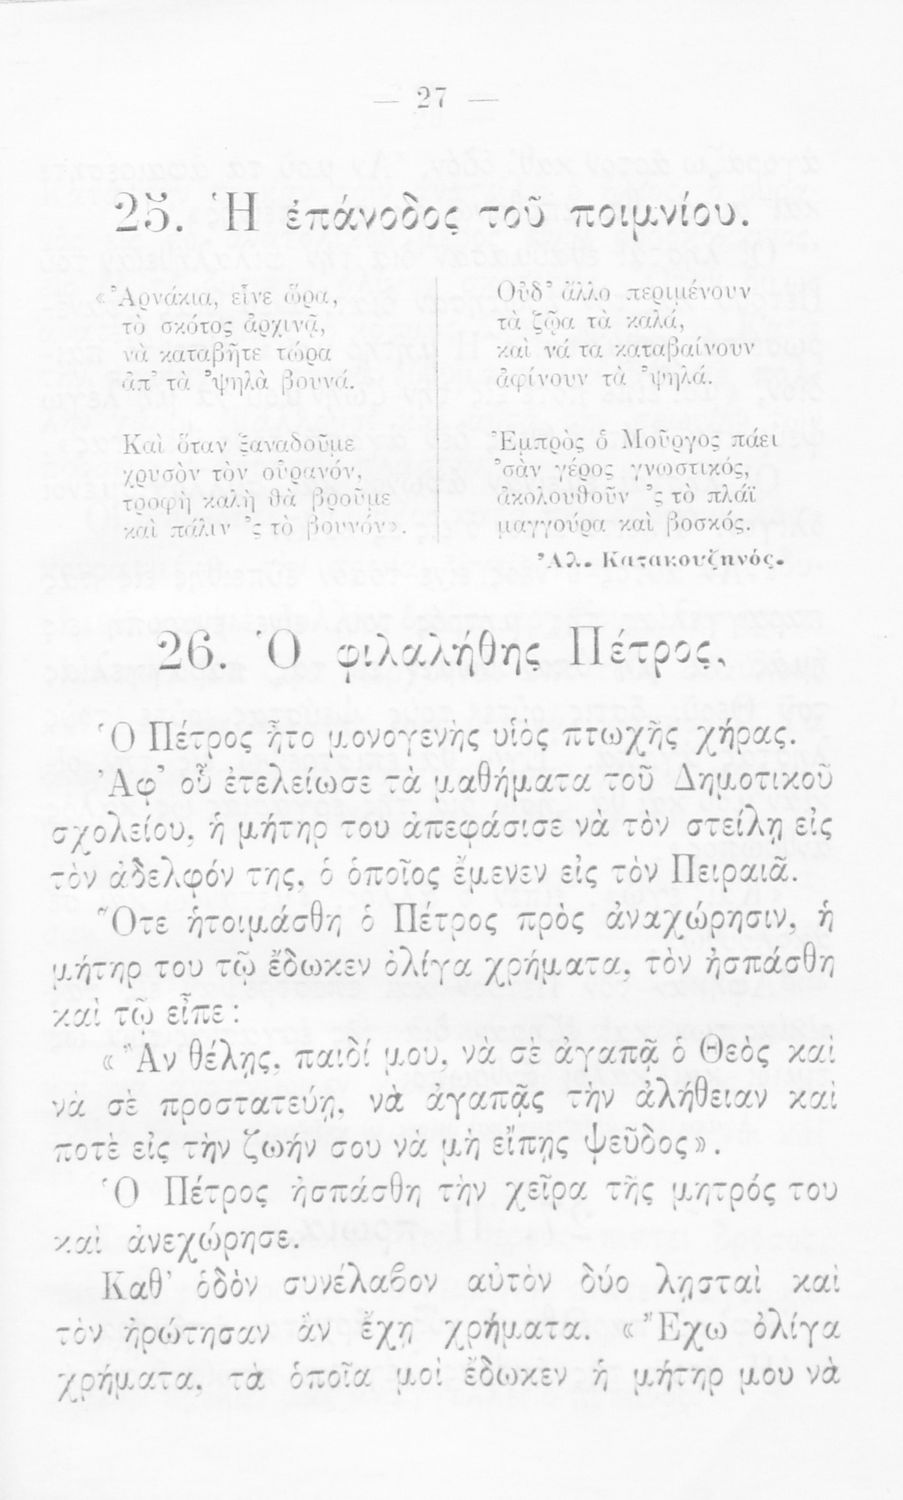 — 27 —
25. Ἡ ἐπάνοδος τοῦ ποιμνίου.
«Ἀρνάκια, εἶνε ὥρα,
τὸ σκότος ἀρχινᾷ,
νὰ καταβῆτε τώρα
ἀπ’ τὰ ’ψηλὰ βουνά.
Καὶ ὅταν ξαναδοῦμε
χρυσὸν τὸν οὐρανόν,
τροφὴ καλὴ θὰ βροῦμε
καὶ πάλιν ’ς τὸ βουνόν».
Οὐδ’ ἄλλο περιμένουν
τὰ ζῷα τὰ καλά,
καὶ νά τα καταβαίνουν
ἀφίνουν τὰ ’ψηλά.
Ἐμπρὸς ὁ Μοῦργος πάει
’σὰν γέρος γνωστικός,
ἀκολουθοῦν ’ς τὸ πλάϊ
μαγγούρα καὶ βοσκός.
Ἀλ. Κατακουζηνός.
26. Ὁ φιλαλήθης Πέτρος.
Ὁ Πέτρος ἦτο μονογενὴς υἱὸς πτωχῆς χήρας.
Ἀφ’ οὗ ἐτελείωσε τὰ μαθήματα τοῦ Δημοτικοῦ
σχολείου, ἡ μήτηρ του ἀπεφάσισε νὰ τὸν στείλῃ εἰς
τὸν ἀδελφόν της, ὁ ὁποῖος ἔμενεν εἰς τὸν Πειραιᾶ.
Ὅτε ἡτοιμάσθη ὁ Πέτρος πρὸς ἀναχώρησιν, ἡ
μήτηρ του τῷ ἔδωκεν ὀλίγα χρήματα, τὸν ἠσπάσθη
καὶ τῷ εἶπε:
«Ἂν θέλῃς, παιδί μου, νὰ σὲ ἀγαπᾷ ὁ Θεὸς καὶ
νὰ σὲ προστατεύῃ, νὰ ἀγαπᾷς τὴν ἀλήθειαν καὶ
ποτὲ εἰς τὴν ζωήν σου νὰ μὴ εἴπῃς ψεῦδος».
Ὁ Πέτρος ἠσπάσθη τὴν χεῖρα τῆς μητρός του
καὶ ἀνεχώρησε.
Καθ’ ὁδὸν συνέλαβον αὐτὸν δύο λῃσταὶ καὶ
τὸν ἠρώτησαν ἂν ἔχῃ χρήματα. «Ἔχω ὀλίγα
χρήματα, τὰ ὁποῖα μοὶ ἔδωκεν ἡ μήτηρ μου νὰ